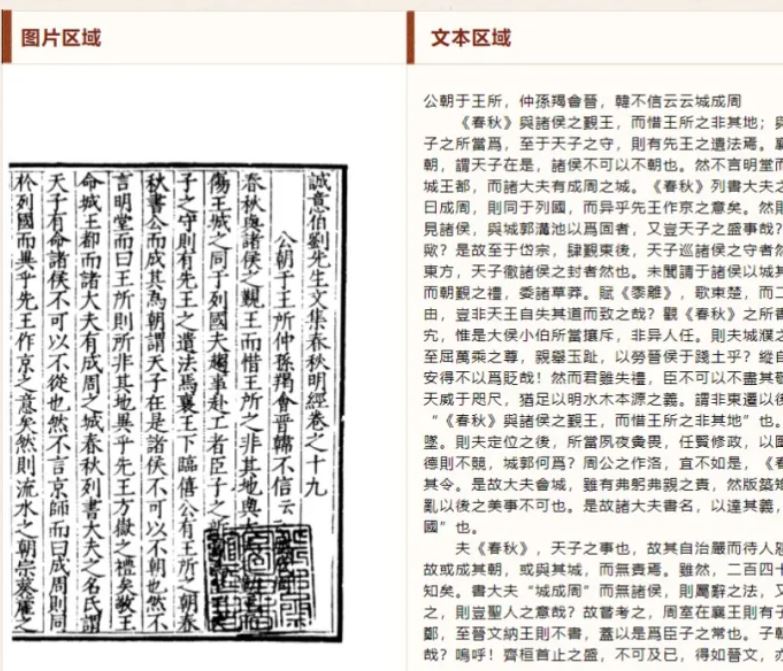 图片区域
誠意伯劉先生文集春秋明經卷之十九
公朝于王所仲孫羯會晉韓不信云
春秋與諸侯之覲王而惜王所之非其地與
傷王城之同于列國夫趨事赴工者臣子之
子之守則有先王之遺法焉襄王下臨僖公有王所之朝春
秋書公而成其爲朝謂天子在是諸侯不可以不朝也然不
言明堂而曰王所則所非其地異乎先王方嶽之禮矣敬王
命城王都而諸大夫有成周之城春秋列書大夫之名氏謂
天子有命諸侯不可以不從也然不言京師而曰成周則同
於列國而異乎先王作京之意矣然則流水之朝宗蓑蘧之
文本区域
公朝于王所，仲孫羯會晉，韓不信云云城成周
《春秋》與諸侯之覲王，而惜王所之非其地；與
子之所當爲，至于天子之守，則有先王之遺法焉。襄
朝，謂天子在是，諸侯不可以不朝也。然不言明堂而
城王都，而諸大夫有成周之城。《春秋》列書大夫之
曰成周，則同于列國，而异乎先王作京之意矣。然則
見諸侯，與城郭溝池以爲固者，又豈天子之盛事哉？
歟？是故至于岱宗，肆覲東後，天子巡諸侯之守者然
東方，天子徹諸侯之封者然也。未聞請于諸侯以城其
而朝覲之禮，委諸草莽。賦《黍離》，歌束楚，而二
由，豈非天王自失其道而致之哉？觀《春秋》之所書
宄，惟是大侯小伯所當攘斥，非异人任。則夫城濮之
至屈萬乘之尊，親舉玉趾，以勞晉侯于踐土乎？縱自
安得不以爲貶哉！然而君雖失禮，臣不可以不盡其敬
天威于咫尺，猶足以明水木本源之義。謂非東遷以後
“《春秋》與諸侯之覲王，而惜王所之非其地”也。
墜。則夫定位之後，所當夙夜夤畏，任賢修政，以固
德則不競，城郭何爲？周公之作洛，宜不如是，《春
其令。是故大夫會城，雖有弗躬弗親之責，然版築矩
亂以後之美事不可也。是故諸大夫書名，以達其義，
國”也。
夫《春秋》，天子之事也，故其自治嚴而待人
故或成其朝，或與其城，而無責焉。雖然，二百四十
知矣。書大夫“城成周”而無諸侯，則屬辭之法，又
之，則豈聖人之意哉？故嘗考之，周室在襄王則有子
鄭，至晉文納王則不書，蓋以是爲臣子之常也。子朝
哉？嗚呼！齊桓首止之盛，不可及已，得如晉文，亦